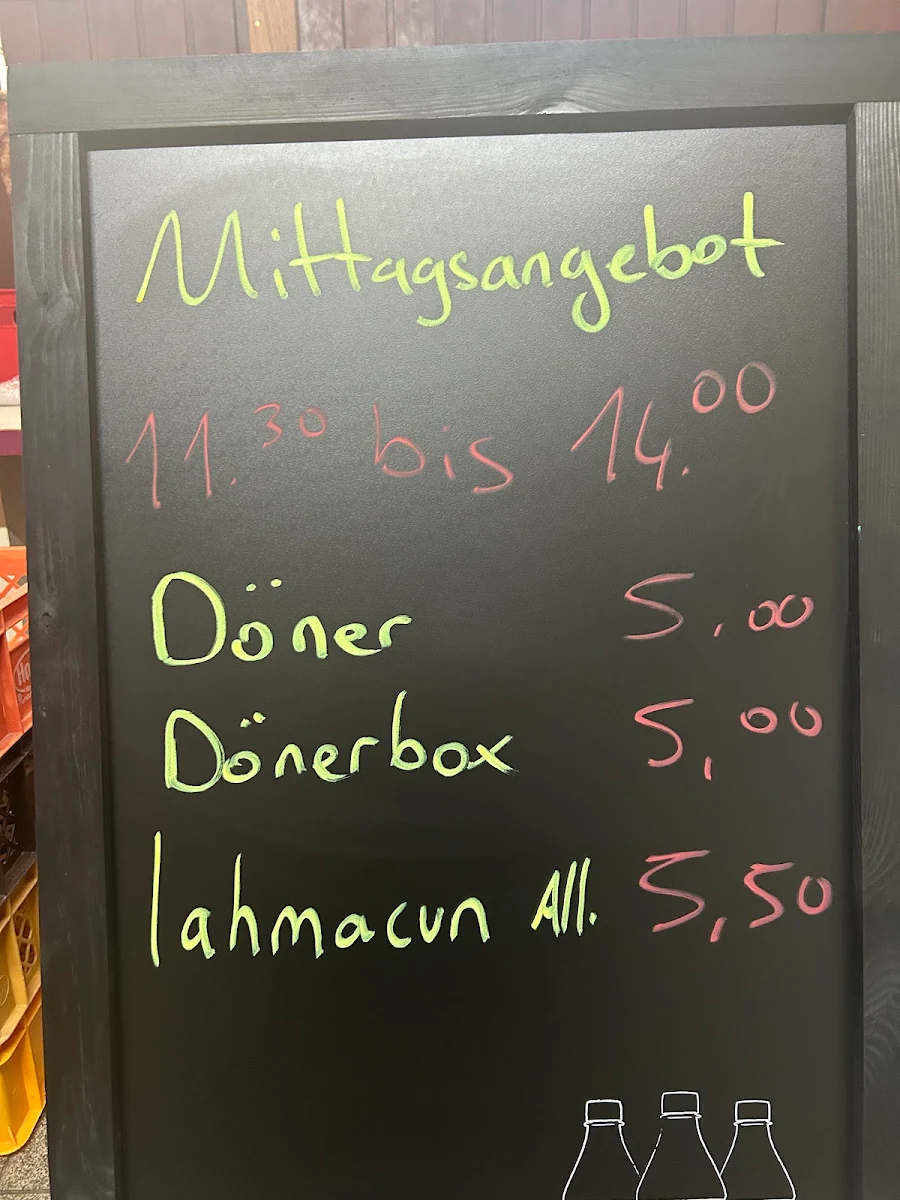 Mittagsangebot
11.30 bis 14.00
Döner 5,00
Dönerbox 5,00
lahmacun All. 5,50